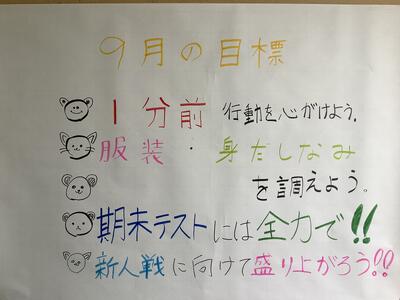 9月の目標
1分前 行動を心がけよう.
服装・身だしなみ
を調えよう。
期末テストには全力で!!
新人戦に向けて盛り上がろう!!